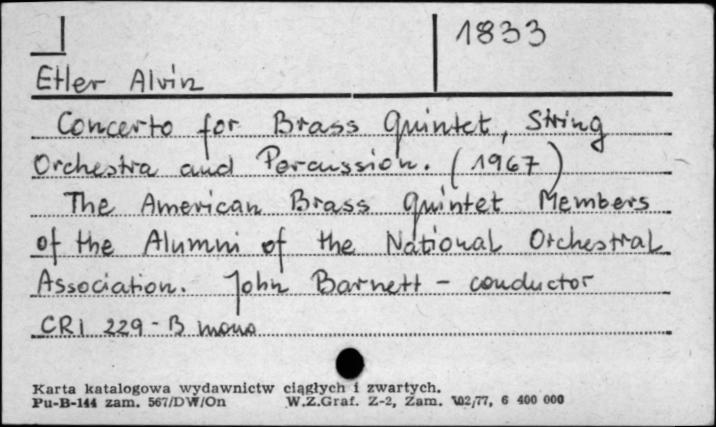 1833
Etler Alvin
Concerto for Brass Quintet, String
Orchestra and Percussion. (1967)
The American Brass Quintet Members
of the Alumni of the National Orchestral
Association. John Barnett - conductor
CRI 229-B mono
Karta katalogowa wydawnictw ciągłych i zwartych.
Pu-B-144 zam. 567/DW/On W.Z.Graf. Z-2, Zam. 102/77, 6 400 000